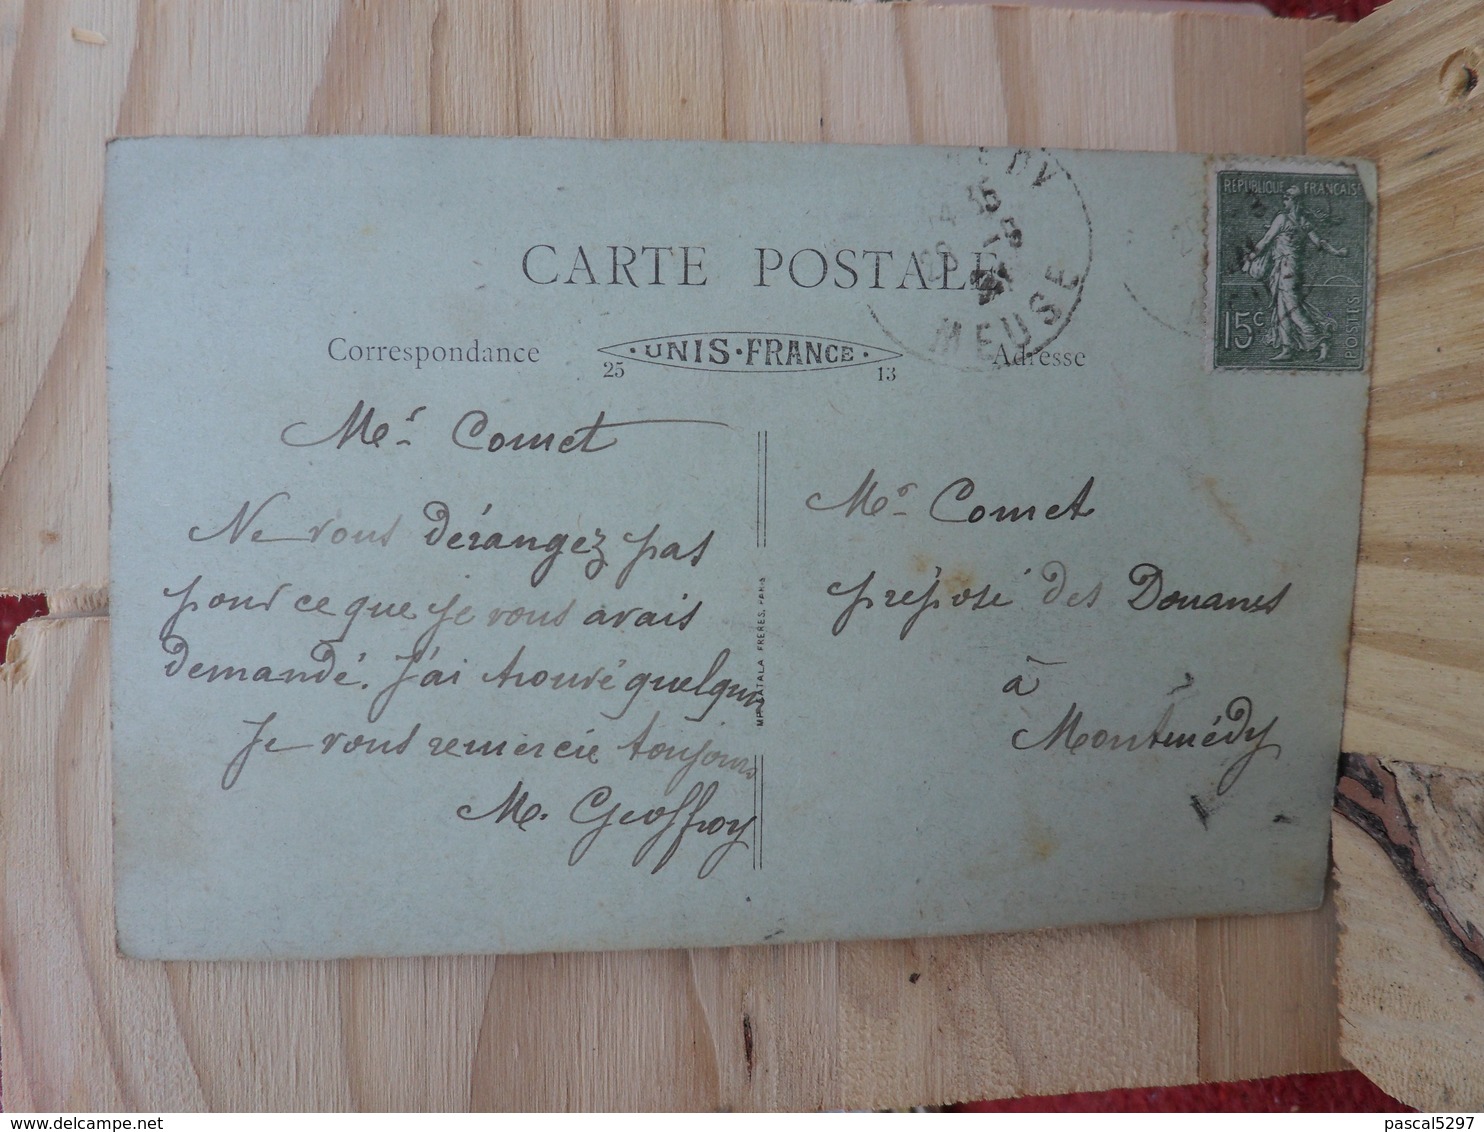 CARTE POSTALE
Correspondance
UNIS·FRANCE·
25 13
Adresse
MEUSE
RÉPUBLIQUE FRANÇAISE
15c
POSTES
Mr Comet
Ne vous dérangez pas
pour ce que je vous avais
demandé. J'ai trouvé quelqun
Je vous remercie toujours
M. Geoffroy
FRERES, PARIS
Mr Comet
préposé des Douanes
à
Montmédy
delcampe.net
pascal5297